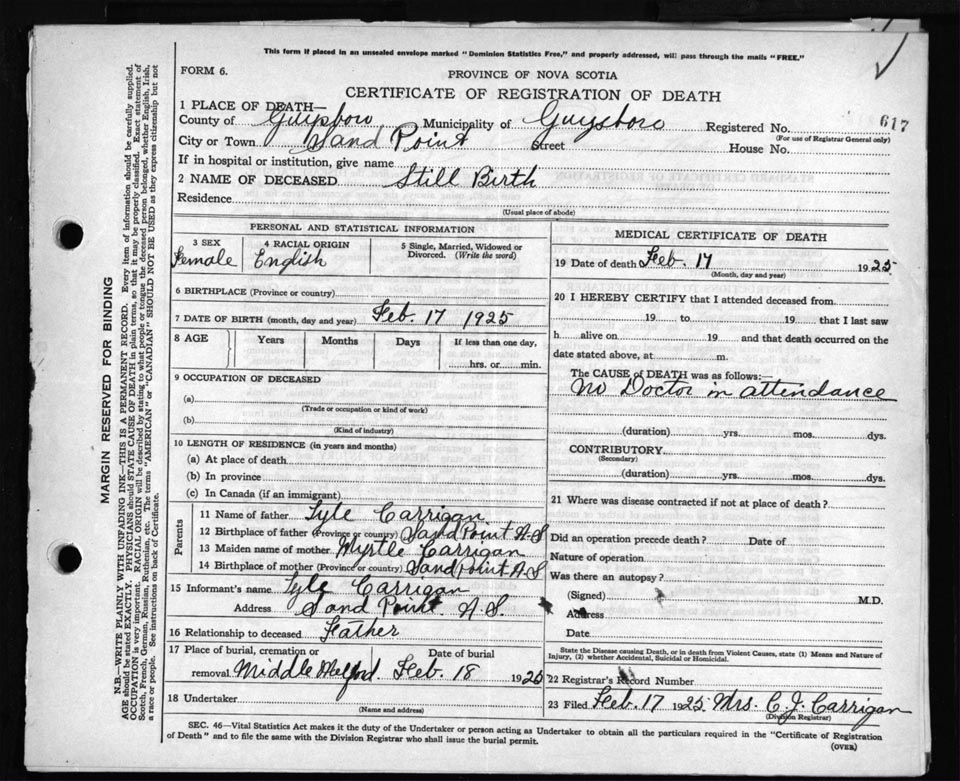 This form if placed in an unsealed envelope marked "Dominion Statistics Free," and properly addressed, will pass through the mails "FREE."
FORM 6.
PROVINCE OF NOVA SCOTIA
CERTIFICATE OF REGISTRATION OF DEATH
1 PLACE OF DEATH—
County of Guysboro Municipality of Guysboro Registered No. 617
(For use of Registrar General only)
City or Town Sand Point Street House No.
If in hospital or institution, give name
2 NAME OF DECEASED Still Birth
Residence
(Usual place of abode)
PERSONAL AND STATISTICAL INFORMATION
3 SEX 4 RACIAL ORIGIN 5 Single, Married, Widowed or Divorced. (Write the word)
Female English
6 BIRTHPLACE (Province or country)
7 DATE OF BIRTH (month, day and year) Feb. 17 1925
8 AGE Years Months Days If less than one day,
hrs. or min.
9 OCCUPATION OF DECEASED
(a)
(Trade or occupation or kind of work)
(b)
(Kind of industry)
10 LENGTH OF RESIDENCE (in years and months)
(a) At place of death
(b) In province
(c) In Canada (if an immigrant)
Parents
11 Name of father Lyle Carrigan
12 Birthplace of father (Province or country) Sand Point N.S
13 Maiden name of mother Myrtle Carrigan
14 Birthplace of mother (Province or country) Sand Point N.S
15 Informant's name Lyle Carrigan
Address Sand Point N.S
16 Relationship to deceased Father
17 Place of burial, cremation or Date of burial
removal Middle Melford. Feb. 18 1925
18 Undertaker
(Name and address)
MEDICAL CERTIFICATE OF DEATH
19 Date of death Feb. 17 1925
(Month, day and year)
20 I HEREBY CERTIFY that I attended deceased from
19 to 19 that I last saw
h alive on 19 and that death occurred on the
date stated above, at m.
The CAUSE of DEATH was as follows:—
No Doctor in attendance
(duration) yrs. mos. dys.
CONTRIBUTORY
(Secondary)
(duration) yrs. mos. dys.
21 Where was disease contracted if not at place of death?
Did an operation precede death? Date of
Nature of operation
Was there an autopsy?
(Signed) M.D.
Address
Date
State the Disease causing Death, or in death from Violent Causes, state (1) Means and Nature of
Injury, (2) whether Accidental, Suicidal or Homicidal.
22 Registrar's Record Number
23 Filed Feb. 17 1925 Mrs. C. J. Carrigan
(Division Registrar)
SEC. 46—Vital Statistics Act makes it the duty of the Undertaker or person acting as Undertaker to obtain all the particulars required in the "Certificate of Registration
of Death" and to file the same with the Division Registrar who shall issue the burial permit.
(OVER)
MARGIN RESERVED FOR BINDING
N.B.—WRITE PLAINLY WITH UNFADING INK—THIS IS A PERMANENT RECORD. Every item of information should be carefully supplied.
AGE should be stated EXACTLY. PHYSICIANS should STATE CAUSE OF DEATH in plain terms, so that it may be properly classified. Exact statement of
OCCUPATION is very important. RACIAL ORIGIN will be described by stating to what people or tongue the deceased person belonged, whether English, Irish,
Scotch, French, German, Russian, Ruthenian, etc. The terms "AMERICAN" or "CANADIAN" SHOULD NOT BE USED as they express citizenship but not
a race or people. See instructions on back of Certificate.